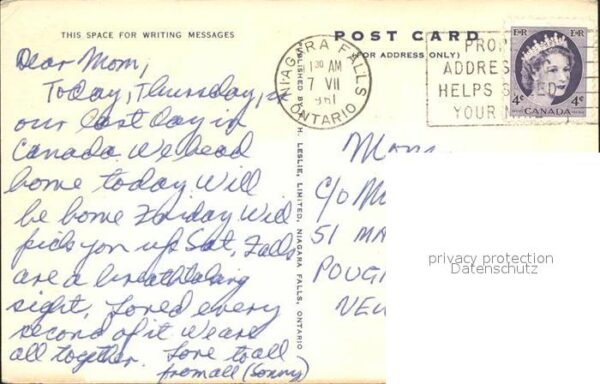 THIS SPACE FOR WRITING MESSAGES
Dear Mom,
Today, Thursday, is
our last day in
Canada. We head
home today. Will
be home Friday. Will
pick you up Sat. Falls
are a breathtaking
sight, Loved every
second of it. We are
all together. Love to all
from all (Sonny)
PUBLISHED BY H. LESLIE, LIMITED, NIAGARA FALLS, ONTARIO
POST CARD
(FOR ADDRESS ONLY)
NIAGARA FALLS
1 30 AM
7 VII
1961
ONTARIO
PROP
ADDRES
HELPS S EED
YOUR M
E II R E II R
4¢ 4¢
CANADA
Mom
C/O M
51 MA
POUG
NEW
privacy protection
Datenschutz